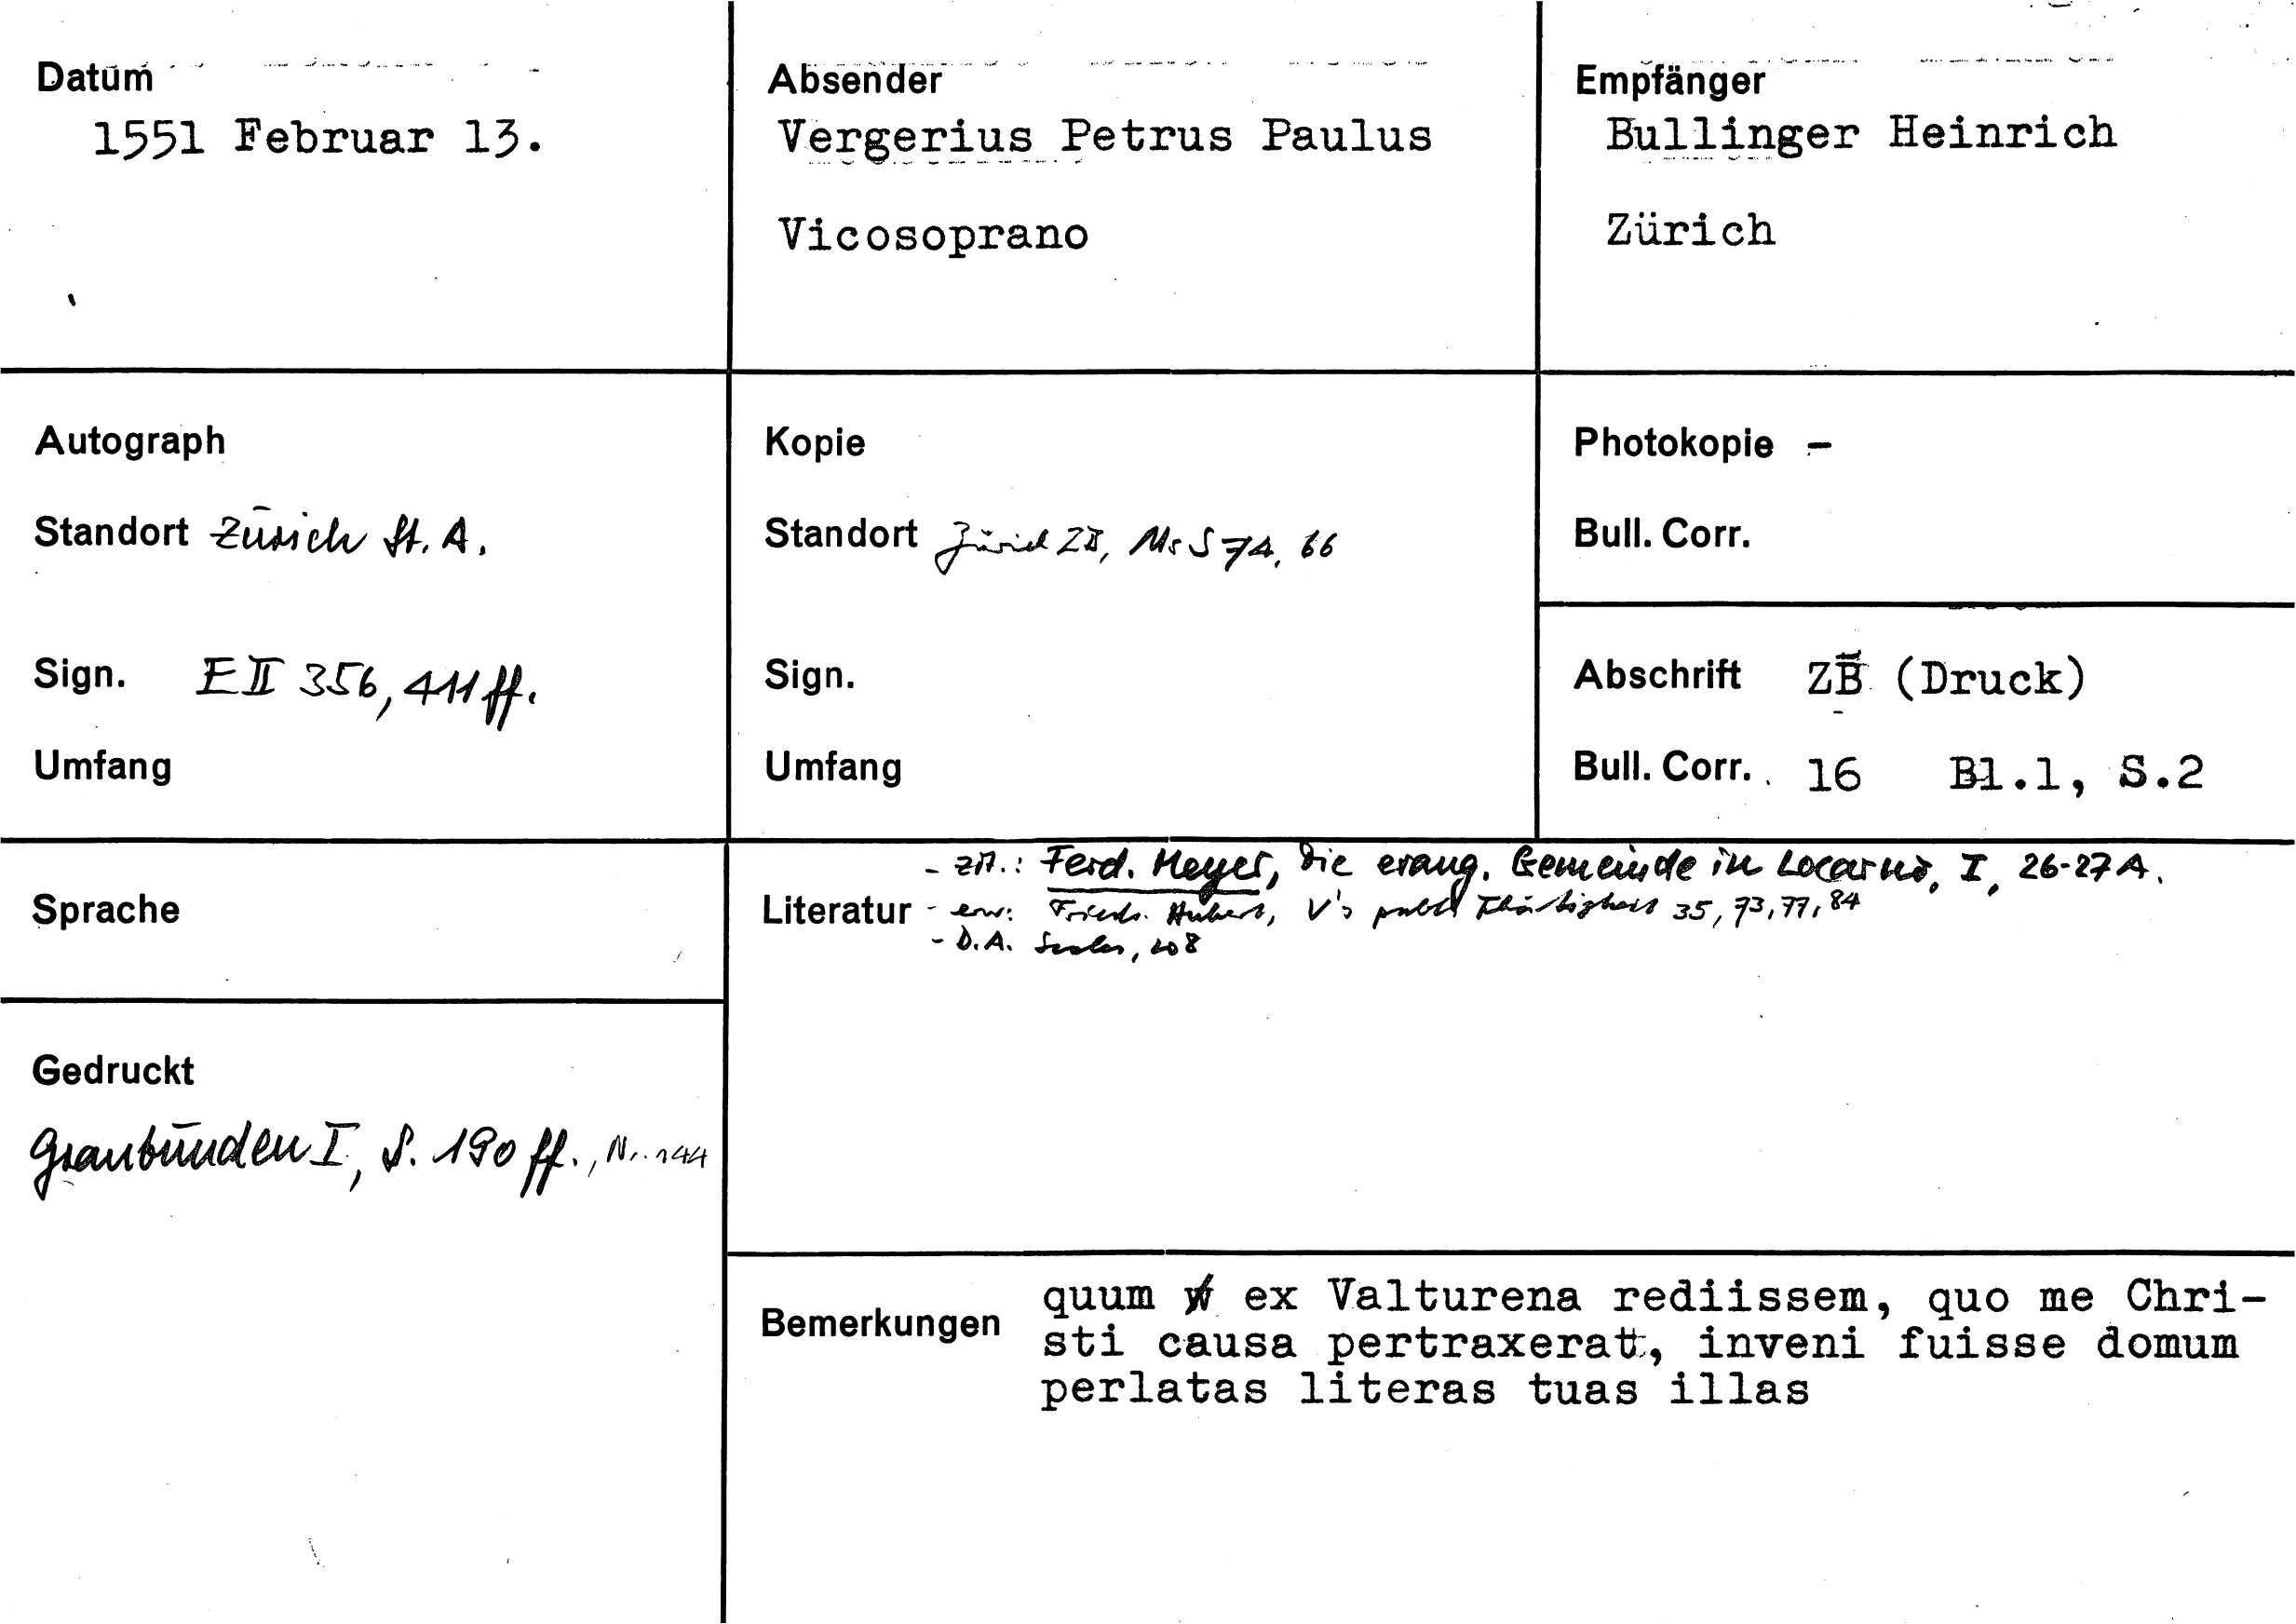 Datum
1551 Februar 13.
Absender
Vergerius Petrus Paulus
Vicosoprano
Empfänger
Bullinger Heinrich
Zürich
Autograph
Standort Zürich St. A.
Sign. E II 356, 411 ff.
Umfang
Kopie
Standort Zürich ZB, Ms S 74, 66
Sign.
Umfang
Photokopie -
Bull. Corr.
Abschrift ZB (Druck)
Bull. Corr. 16 Bl.1, S.2
Sprache
Gedruckt
Graubünden I, S. 190 ff., Nr. 144
- zit.: Ferd. Meyer, Die evang. Gemeinde in Locarno, I, 26-27 A.
Literatur - erw: Friedr. Hubert, V's publ Thätigkeit 35, 73, 77, 84
- D.A. 208
Bemerkungen
quum ex Valturena rediissem, quo me Chri-
sti causa pertraxerat, inveni fuisse domum
perlatas literas tuas illas